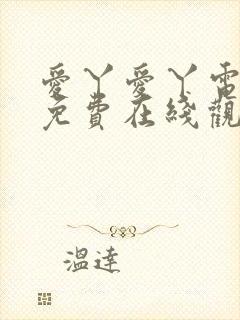 愛丫愛丫電
免費在綫觀
溫達